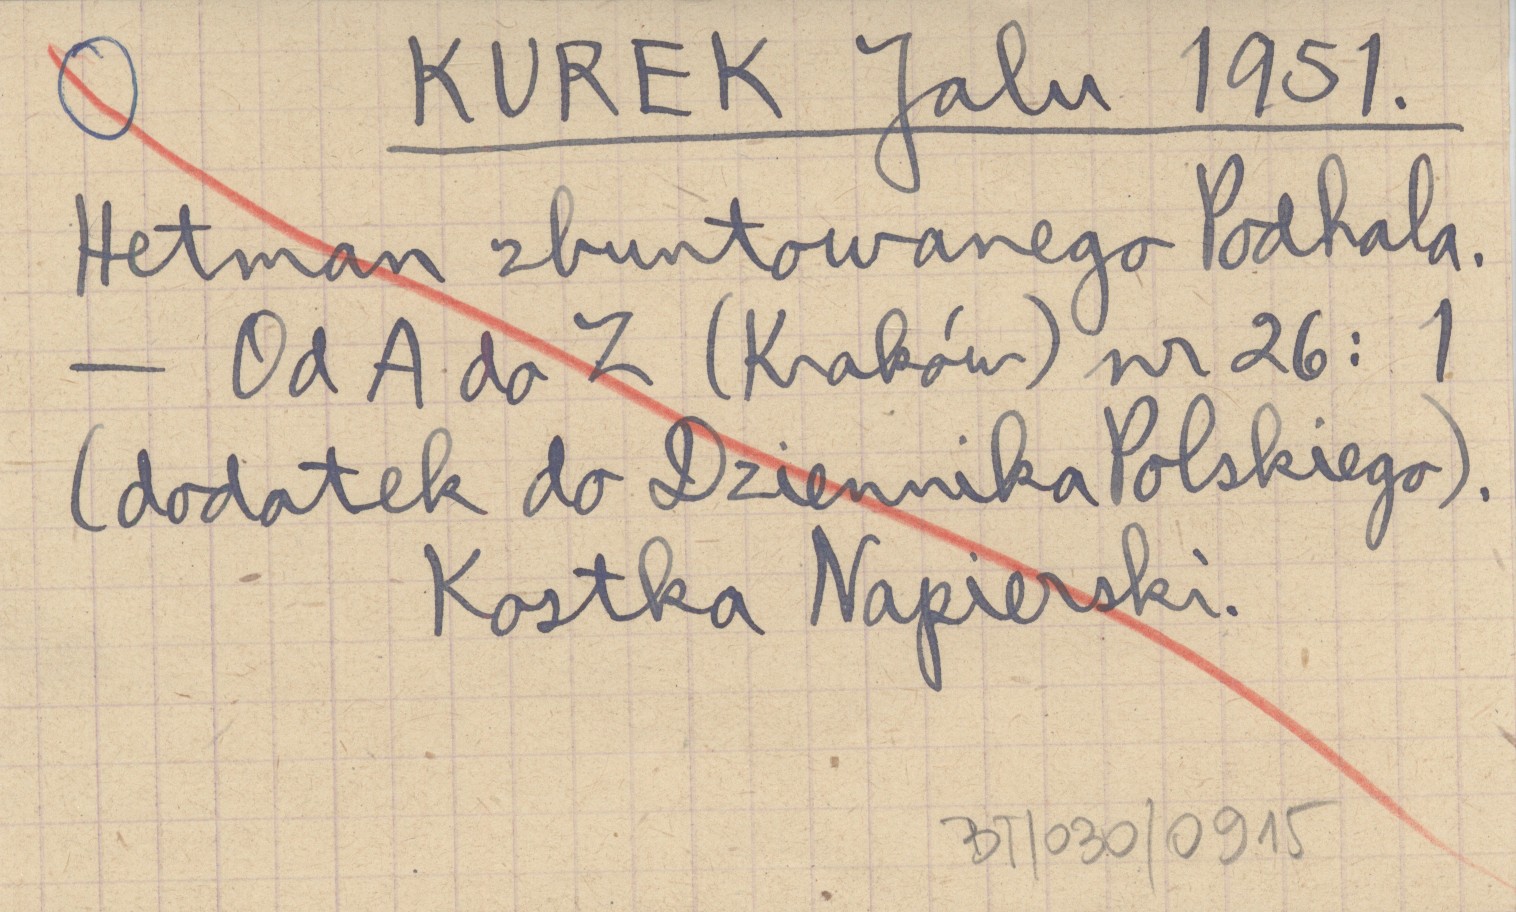 KUREK Jalu 1951.
Hetman zbuntowanego Podhala.
— Od A do Z (Kraków) nr 26: 1
(dodatek do Dziennika Polskiego).
Kostka Napierski.
BT/030/0915